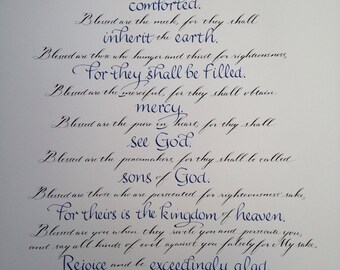 comforted.
Blessed are the meek, for they shall
inherit the earth.
Blessed are those who hunger and thirst for righteousness,
For they shall be filled.
Blessed are the merciful, for they shall obtain
mercy.
Blessed are the pure in heart, for they shall
see God.
Blessed are the peacemakers, for they shall be called
sons of God.
Blessed are those who are persecuted for righteousness sake,
For theirs is the kingdom of heaven.
Blessed are you when they revile you and persecute you,
and say all kinds of evil against you falsely for My sake.
Rejoice and be exceedingly glad